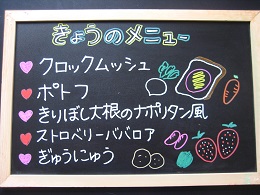 きょうのメニュー
クロックムッシュ
ポトフ
きりぼし大根のナポリタン風
ストロベリーババロア
ぎゅうにゅう